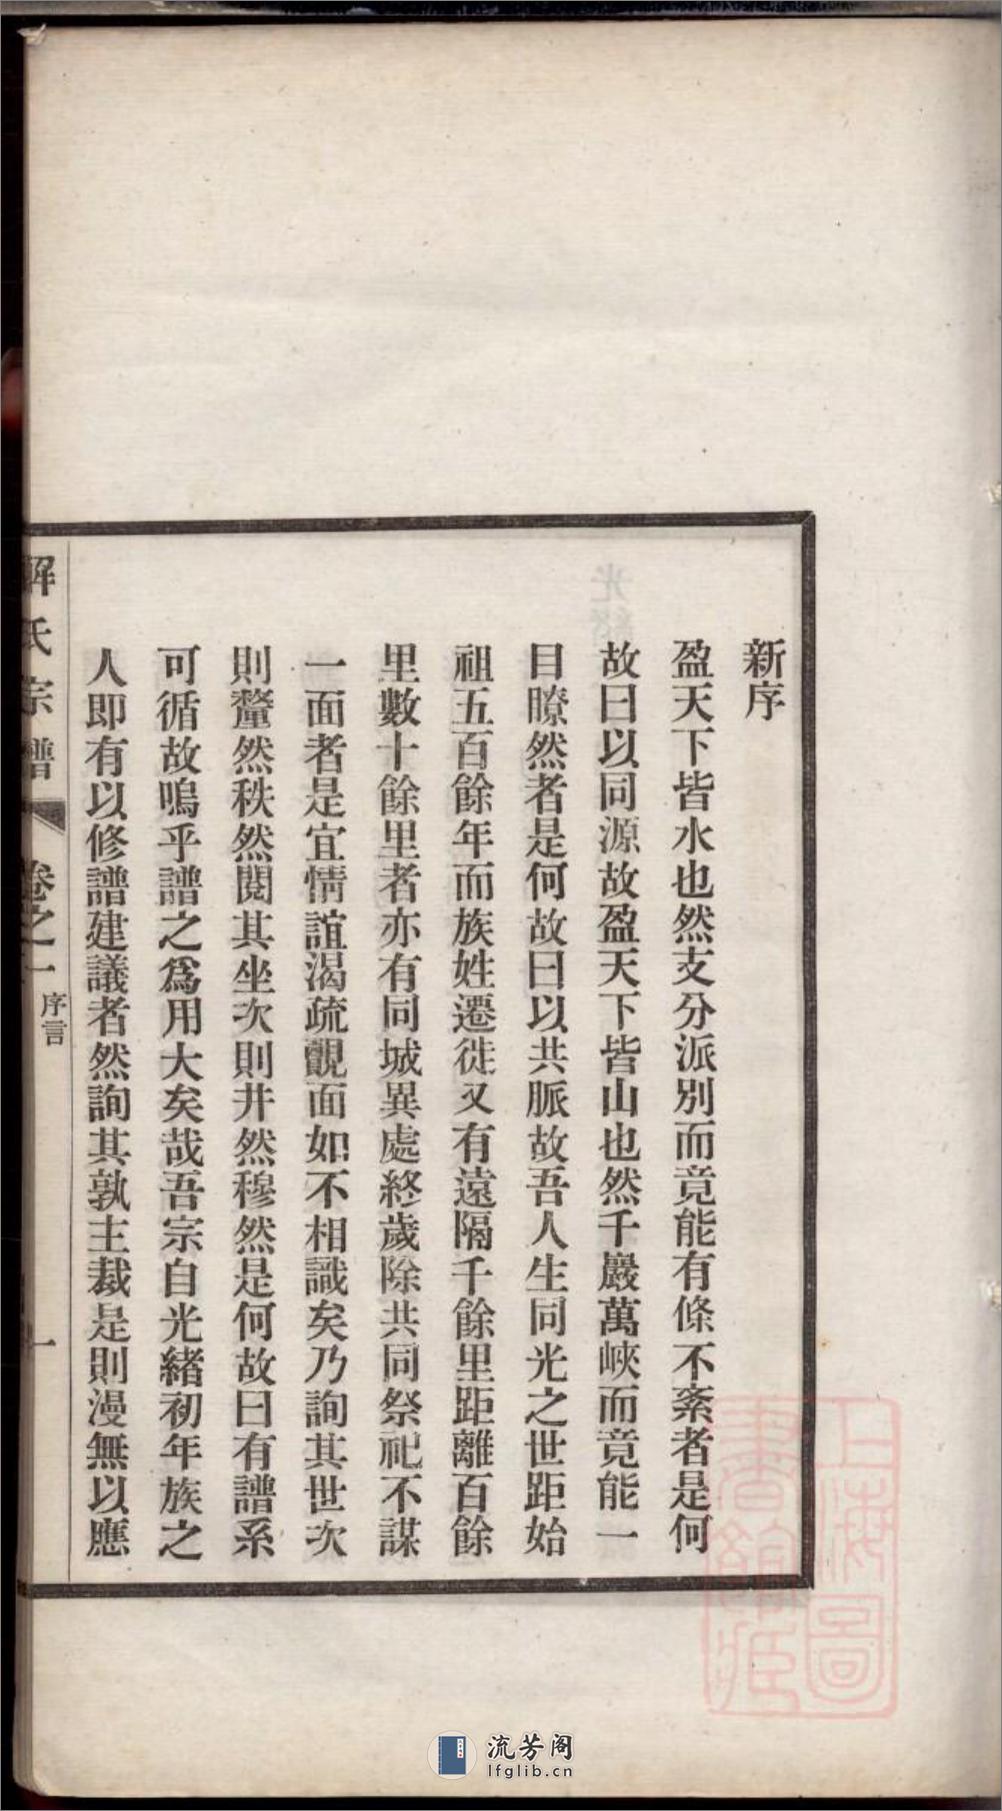 新序
盈天下皆水也然支分派別而竟能有條不紊者是何
故曰以同源故盈天下皆山也然千巖萬峽而竟能一
目瞭然者是何故曰以共脈故吾人生同光之世距始
祖五百餘年而族姓遷徙又有遠隔千餘里距離百餘
里數十餘里者亦有同城異處終歲除共同祭祀不謀
一面者是宜情誼渴疏覿面如不相識矣乃詢其世次
則釐然秩然閱其坐次則井然穆然是何故曰有譜系
可循故嗚乎譜之爲用大矣哉吾宗自光緒初年族之
人即有以修譜建議者然詢其孰主裁是則漫無以應
解氏宗譜
卷之一
序言
一
上海圖
書館藏
流芳阁
lfglib.cn